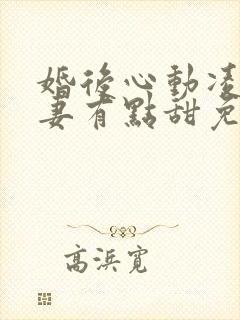 婚後心動凌
妻有點甜免
高浜寛